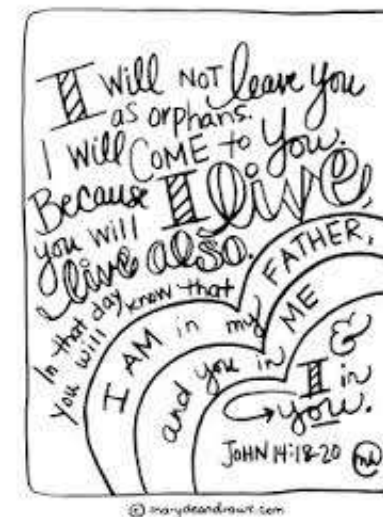 I will NOT leave you
as orphans.
I will COME to you.
Because I live,
you will
live also.
In that day
you will know that
I AM in my FATHER,
and you in ME
&
I in
you.
JOHN 14:18-20
© marydeandraws.com